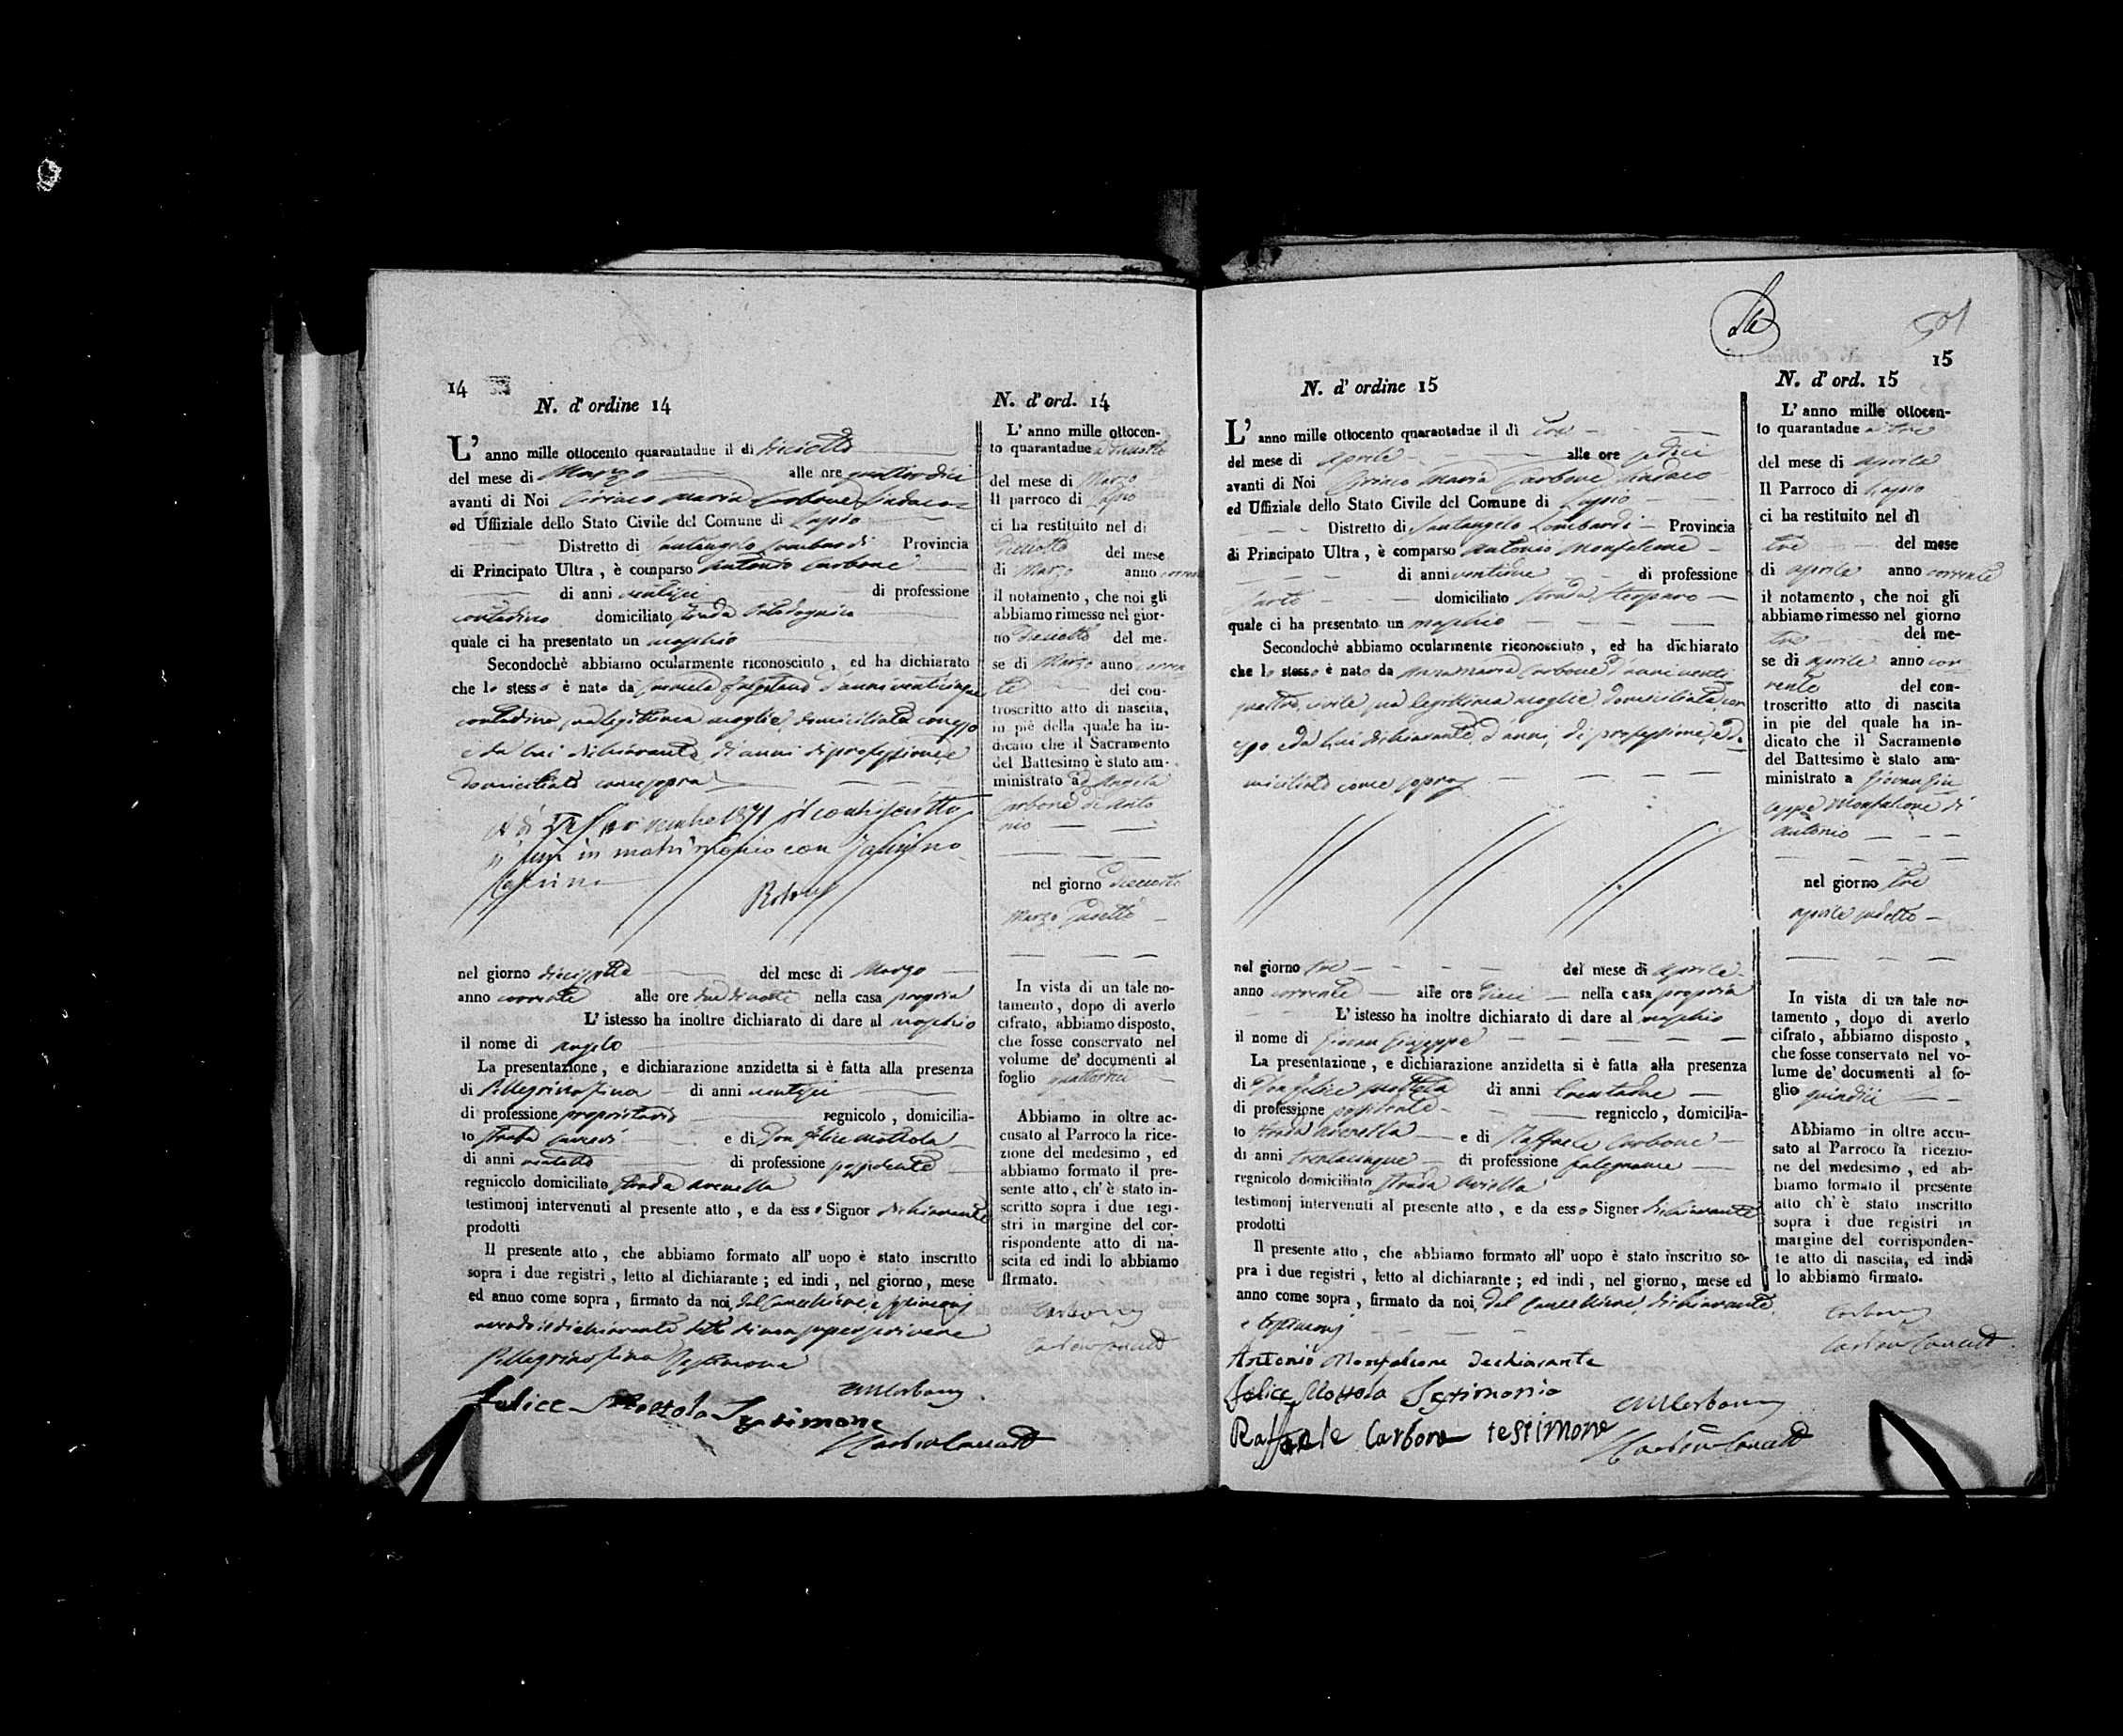 14
N. d' ordine 14
L' anno mille ottocento quarantadue il dì diciotto
del mese di Marzo alle ore quattordici
avanti di Noi Ciriaco Maria Carbone Sindaco
ed Uffiziale dello Stato Civile del Comune di Lapio
Distretto di Santangelo Lombardi Provincia
di Principato Ultra , è comparso Antonio Carbone
di anni ventisei di professione
contadino domiciliato strada
quale ci ha presentato un maschio
Secondochè abbiamo ocularmente riconosciuto , ed ha dichiarato
che lo stesso è nato da Carmela d'anni venticinque
contadina, sua legittima moglie, domiciliata con esso
e da lui dichiarante, di anni, di professione, e
domiciliato come sopra
A dì novembre 1871 il controscritto
si unì in matrimonio con
nel giorno diciassette del mese di Marzo
anno corrente alle ore due di notte nella casa propria
L' istesso ha inoltre dichiarato di dare al maschio
il nome di Angelo
La presentazione , e dichiarazione anzidetta si è fatta alla presenza
di Pellegrino di anni ventisei
di professione proprietario regnicolo , domicilia-
to strada e di Don Felice Mottola
di anni di professione possidente
regnicolo domiciliato strada Avenella
testimonj intervenuti al presente atto , e da esso Signor dichiarante
prodotti
Il presente atto , che abbiamo formato all' uopo è stato inscritto
sopra i due registri , letto al dichiarante ; ed indi , nel giorno , mese
ed anno come sopra , firmato da noi, dal Cancelliere, e testimonj
avendo il dichiarante detto di non saper scrivere
Pellegrino Testimone
Felice Mottola Testimone
N. d' ord. 14
L' anno mille ottocen-
to quarantadue a diciotto
del mese di Marzo
Il parroco di Lapio
ci ha restituito nel dì
diciotto del mese
di Marzo anno corrente
il notamento , che noi gli
abbiamo rimesso nel gior-
no diciotto del me-
se di Marzo anno corren
te del con-
troscritto atto di nascita,
in piè della quale ha in-
dicato che il Sacramento
del Battesimo è stato am-
ministrato ad Angelo
Carbone di Anto
nio
nel giorno diciotto
Marzo sudetto
In vista di un tale no-
tamento , dopo di averlo
cifrato, abbiamo disposto,
che fosse conservato nel
volume de' documenti al
foglio quattordici
Abbiamo in oltre ac-
cusato al Parroco la rice-
zione del medesimo , ed
abbiamo formato il pre-
sente atto , ch' è stato in-
scritto sopra i due regi-
stri in margine del cor-
rispondente atto di na-
scita ed indi lo abbiamo
firmato.
15
N. d' ordine 15
L' anno mille ottocento quarantadue il dì tre
del mese di aprile alle ore sedici
avanti di Noi Ciriaco Maria Carbone Sindaco
ed Uffiziale dello Stato Civile del Comune di Lapio
Distretto di Santangelo Lombardi Provincia
di Principato Ultra , è comparso Antonio Monfalcone
di anni ventidue di professione
sarto domiciliato strada
quale ci ha presentato un maschio
Secondochè abbiamo ocularmente riconosciuto , ed ha dichiarato
che lo stesso è nato da Annamaria Carbone d'anni venti
quattro, civile, sua legittima moglie, domiciliata con
esso, e da lui dichiarante, d'anni, di professione, e do
miciliato come sopra
nel giorno tre del mese di aprile
anno corrente alle ore dieci nella casa propria
L' istesso ha inoltre dichiarato di dare al maschio
il nome di Giovan Giuseppe
La presentazione , e dichiarazione anzidetta si è fatta alla presenza
di Don Felice Mottola di anni
di professione possidente regnicolo , domicilia-
to strada Avenella e di Raffaele Carbone
di anni trentacinque di professione falegname
regnicolo domiciliato strada
testimonj intervenuti al presente atto , e da esso Signor dichiarante
prodotti
Il presente atto , che abbiamo formato all' uopo è stato inscritto so-
pra i due registri , letto al dichiarante ; ed indi , nel giorno , mese ed
anno come sopra , firmato da noi, dal Cancelliere, dichiarante,
e testimonj
Antonio Monfalcone Dechiarante
Felice Mottola Testimonio
Raffaele Carbone testimone
N. d' ord. 15
L' anno mille ottocen-
to quarantadue a tre
del mese di aprile
Il Parroco di Lapio
ci ha restituito nel dì
tre del mese
di aprile anno corrente
il notamento , che noi gli
abbiamo rimesso nel giorno
tre del me-
se di aprile anno cor
rente del con-
troscritto atto di nascita
in pie del quale ha in-
dicato che il Sacramento
del Battesimo è stato am-
ministrato a Giovan Giu
seppe Monfalcone di
Antonio
nel giorno tre
aprile sudetto
In vista di un tale no-
tamento , dopo di averlo
cifrato , abbiamo disposto ,
che fosse conservato nel vo-
lume de' documenti al fo-
glio quindici
Abbiamo in oltre accu-
sato al Parroco la ricezio-
ne del medesimo , ed ab-
biamo formato il presente
atto ch' è stato inscritto
sopra i due registri in
margine del corrisponden-
te atto di nascita, ed indi
lo abbiamo firmato.